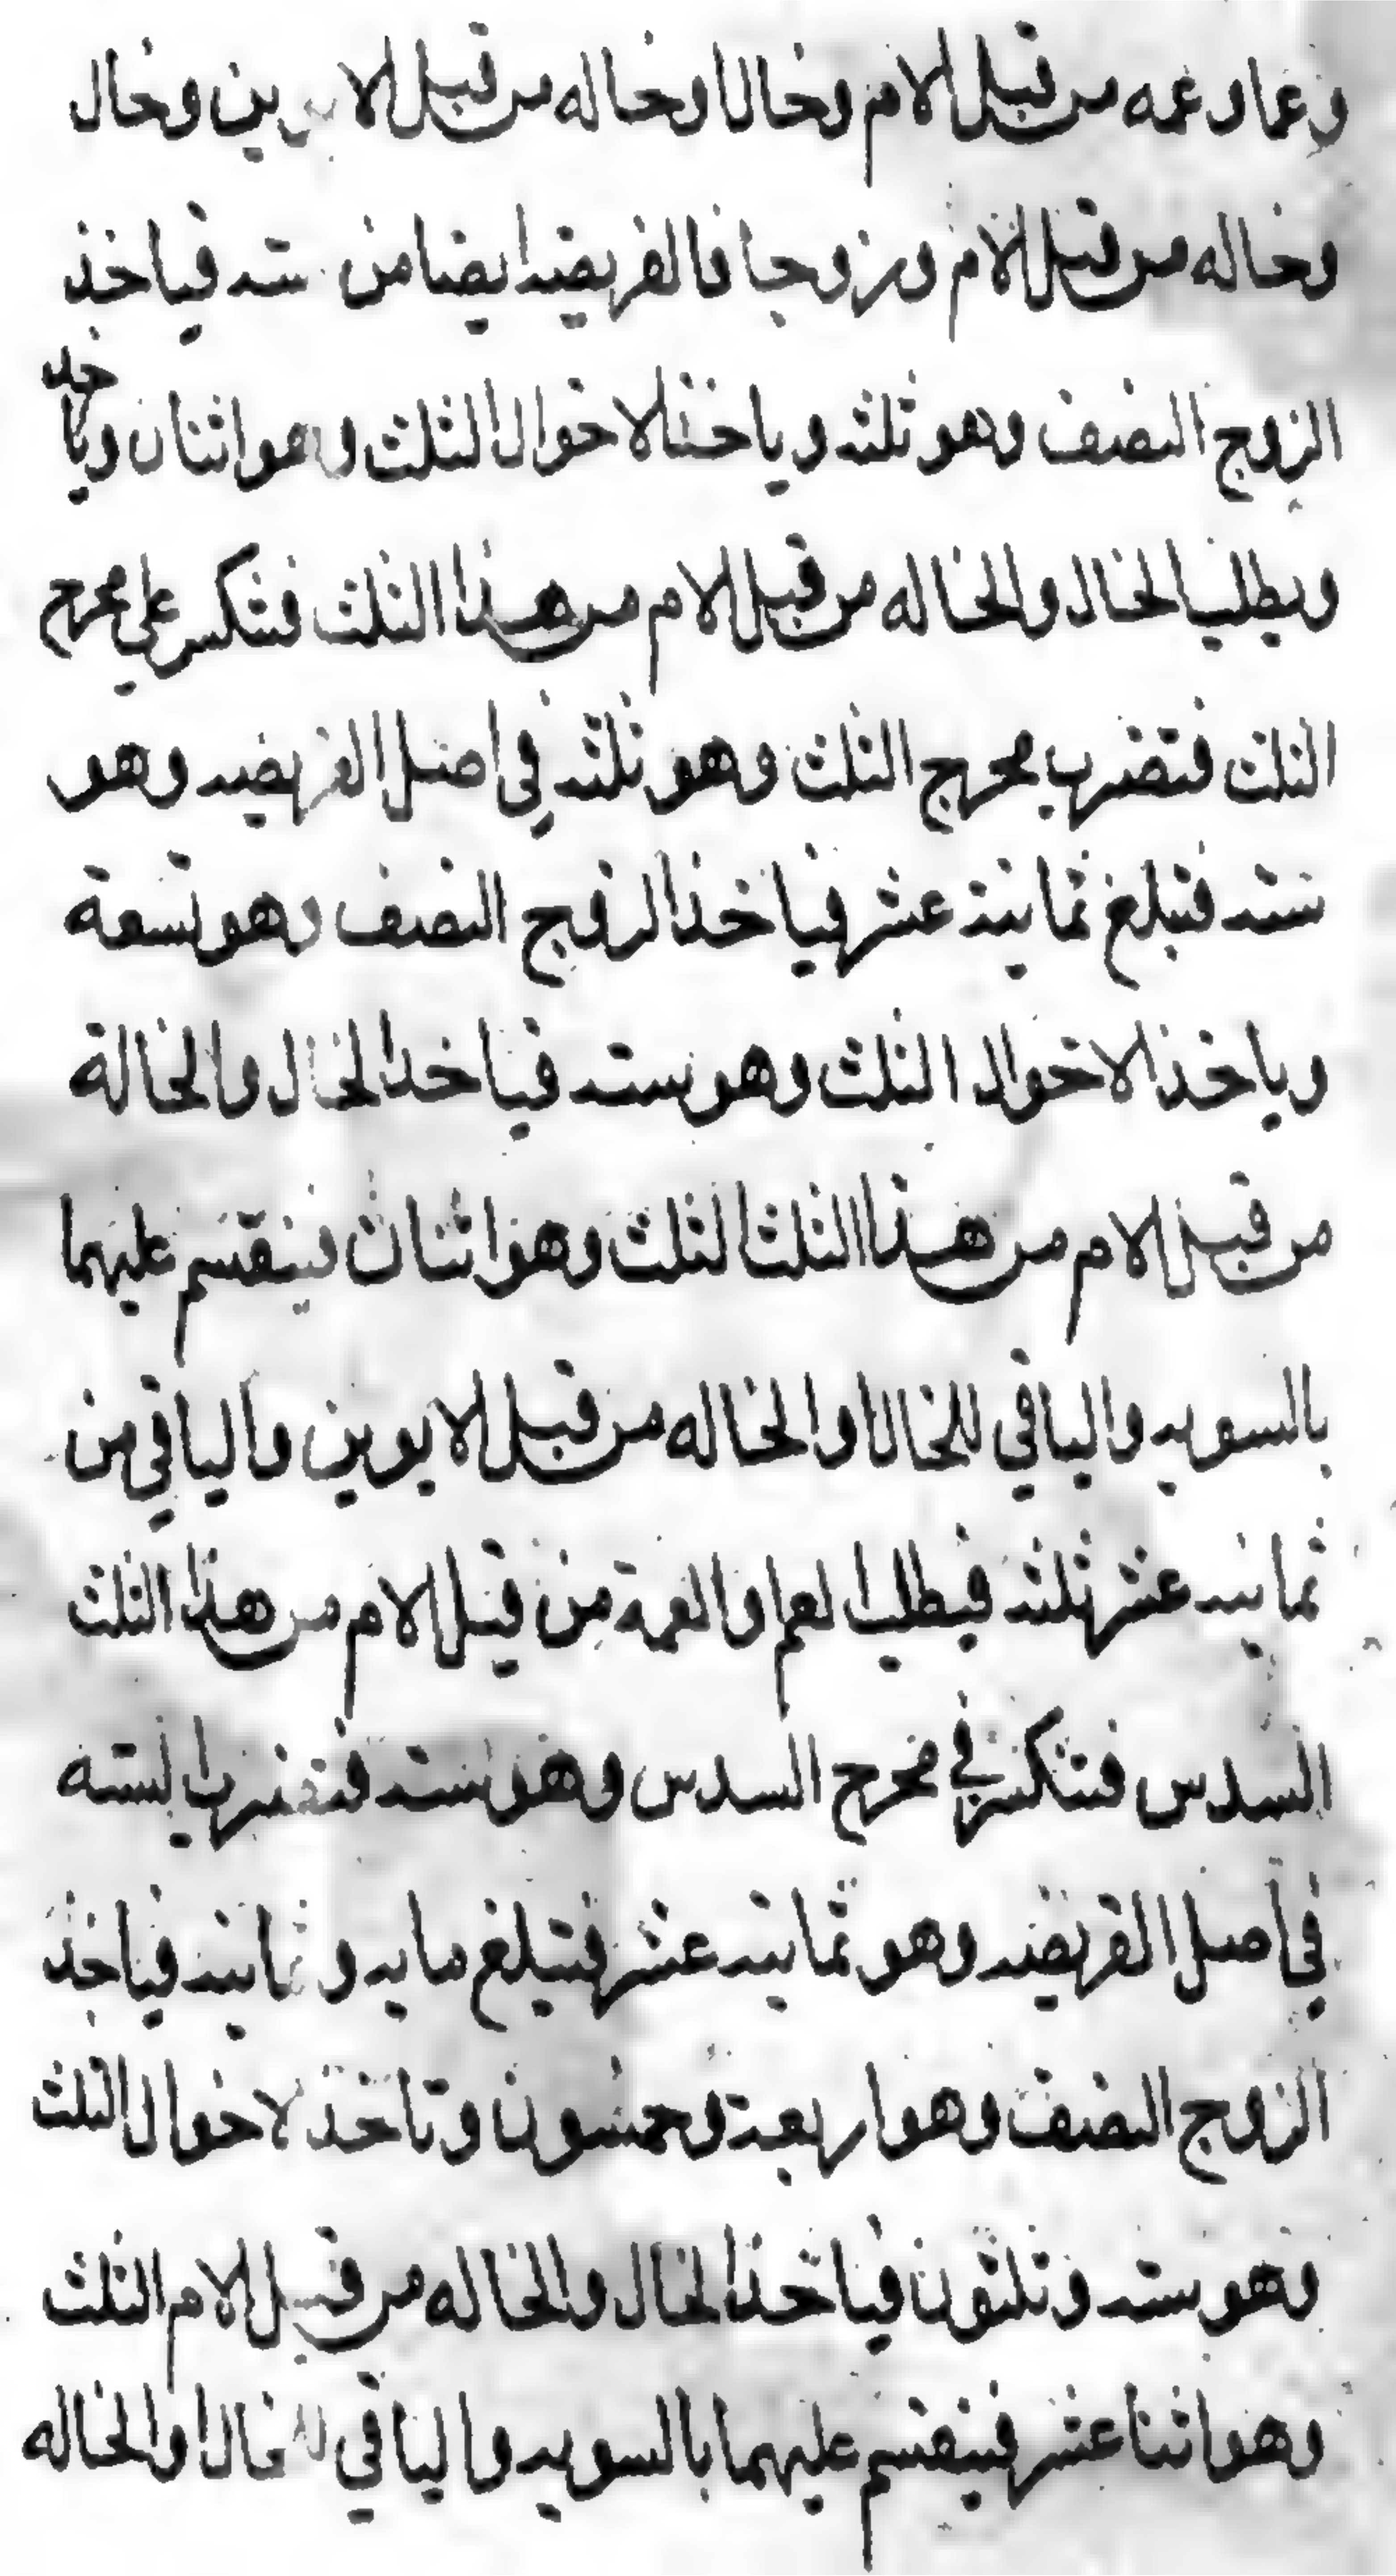 وعما وعمه من قبل الام وخالا وخاله من قبل الابوين وخال
وخاله من قبل الام وزوجا فالفريضه ايضا من سته فياخذ
الزوج النصف وهو ثلثه وياخذ الاخوال الثلث وهو اثنان ويا خذ
ويطلب الخال والخاله من قبل الام من هذا الثلث فتنكسر على مخرج
الثلث فتضرب مخرج الثلث وهو ثلثه في اصل الفريضه وهو
سته فتبلغ ثمانية عشر فياخذ الزوج النصف وهو تسعة
وياخذ الاخوال الثلث وهو سته فياخذ الخال والخالة
من قبل الام من هذا الثلث الثلث وهو اثنان فينقسم عليهما
بالسويه والباقي للخال والخاله من قبل الابوين والباقي من
ثمانيه عشر ثلثه فيطلب العم والعمة من قبل الام من هذا الثلث
السدس فتنكسر في مخرج السدس وهو سته فتضرب الستة
في اصل الفريضه وهو ثمانيه عشر فتبلغ مايه و ثمانيه فياخذ
الزوج النصف وهو اربعة وخمسون وتاخذ الاخوال الثلث
وهو سته وثلثون فياخذ الخال والخاله من قبل الام الثلث
وهو اثنا عشر فينقسم عليهما بالسويه والباقي للخال والخاله